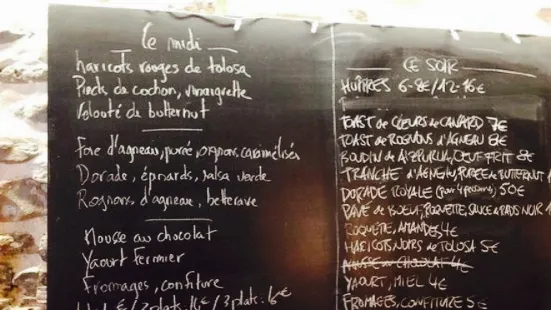 Le midi
haricots rouges de tolosa
Pieds de cochon, vinaigrette
Velouté de butternut
Foie d'agneau, purée, oignons caramélisés
Dorade, épinards, salsa verde
Rognons d'agneau, betterave
Mousse au chocolat
Yaourt Fermier
Fromages, confiture
CE SOIR
HUÎTRES 6-8€/12-16€
TOAST de CŒURS de CANARD 7€
TOAST de ROGNONS D'AGNEAU 8€
BOUDIN de OEUF FRIT 8€
TRANCHE D'AGNEAU, PUREE de BUTTERNUT 1
DORADE ROYALE (pour 4 personnes) 50€
PAVÉ de BOEUF, ROQUETTE, SAUCE RADIS NOIR 1
ROQUETTE, AMANDES 4€
HARICOTS NOIRS de TOLOSA 5€
MOUSSE au CHOCOLAT 4€
YAOURT, MIEL 4€
FROMAGES, CONFITURE 5€